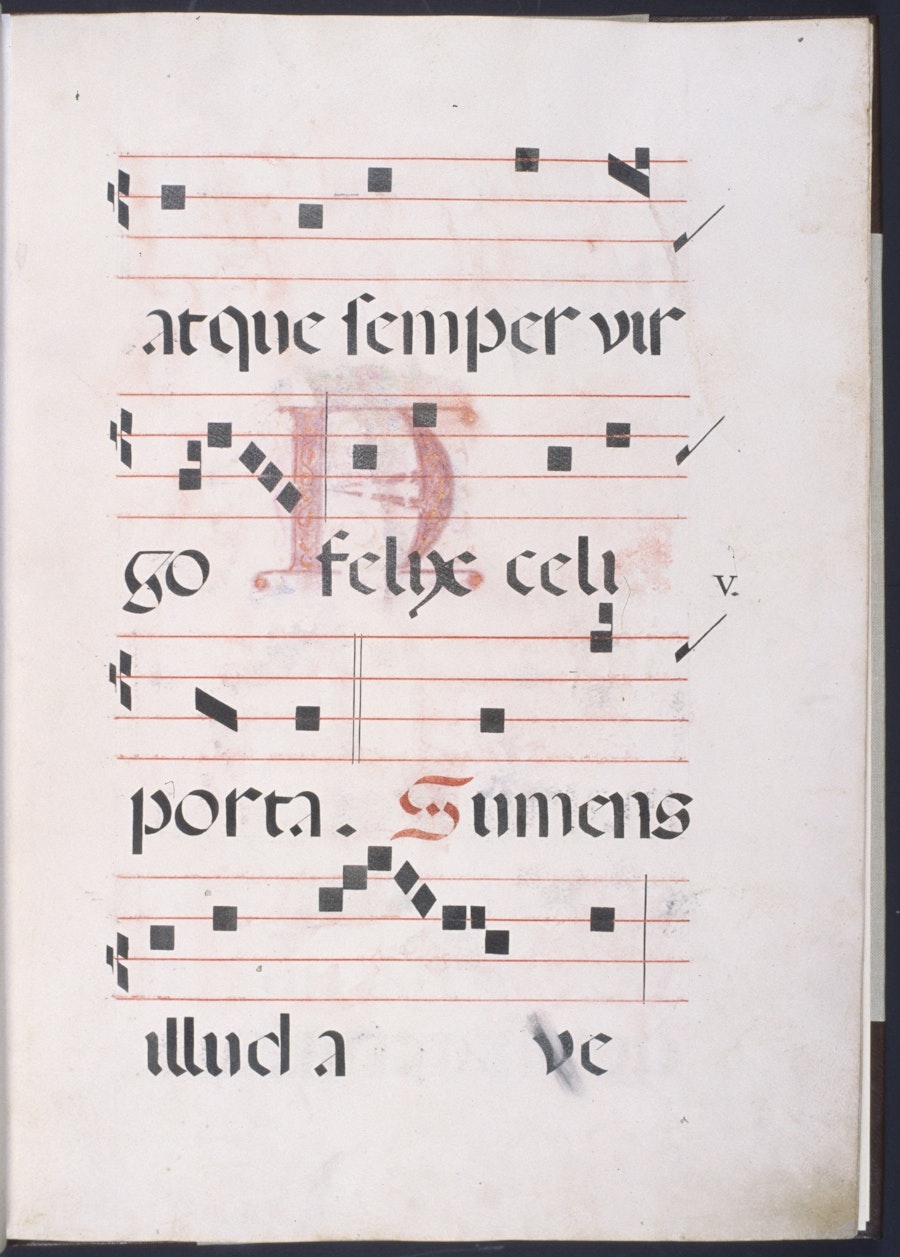 atque semper vir
go felix celi
v.
porta. Sumens
illud a ve